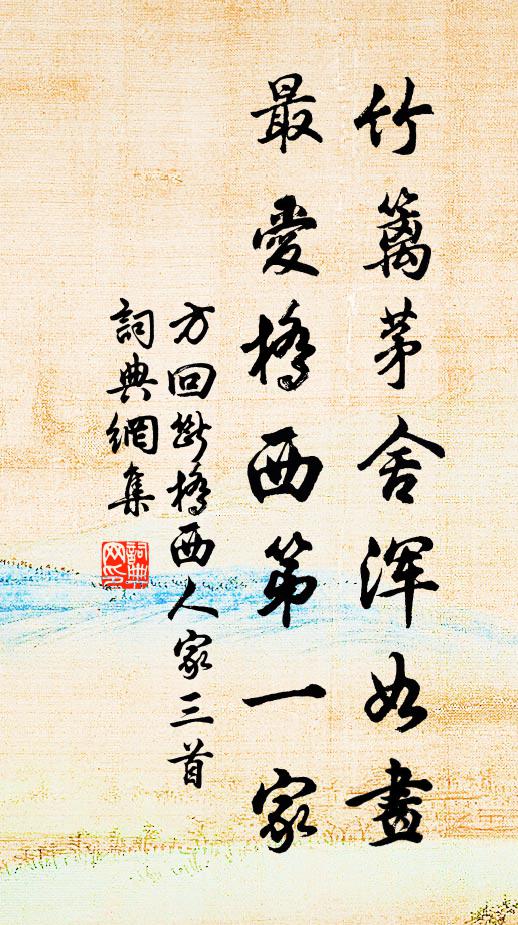 竹籬茅舍浑如畫
最愛橋西第一家
方回斷橋西人家三首
詞典網集
詞典網印